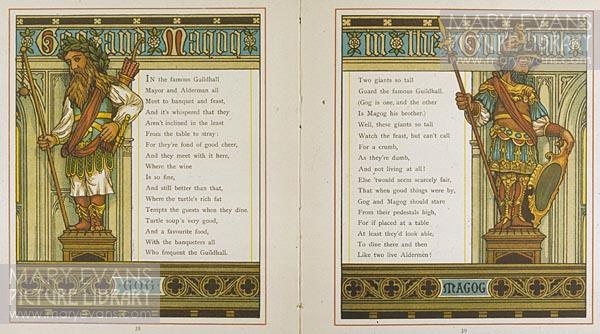 Gog and Magog
In the famous Guildhall
Mayor and Alderman all
Meet to banquet and feast,
And it's whispered that they
Aren't inclined in the least
From the table to stray:
For they're fond of good cheer,
And they meet with it here,
Where the wine
Is so fine,
And still better than that,
Where the turtle's rich fat
Tempts the guests when they dine.
Turtle soup's very good,
And a favourite food,
With the banqueters all
Who frequent the Guildhall.
GOG
38
in the Guildhall
Two giants so tall
Guard the famous Guildhall.
(Gog is one, and the other
Is Magog his brother.)
Well, these giants so tall
Watch the feast, but can't call
For a crumb,
As they're dumb,
And not living at all!
Else 'twould seem scarcely fair,
That when good things were by,
Gog and Magog should stare
From their pedestals high,
For if placed at a table
At least they'd look able,
To dine there and then
Like two live Aldermen!
MAGOG
39
MARY EVANS
PICTURE LIBRARY
www.maryevans.com
MARY EVANS
PICTURE LIBRARY
MARY EVANS
PICTURE LIBRARY
www.maryevans.com